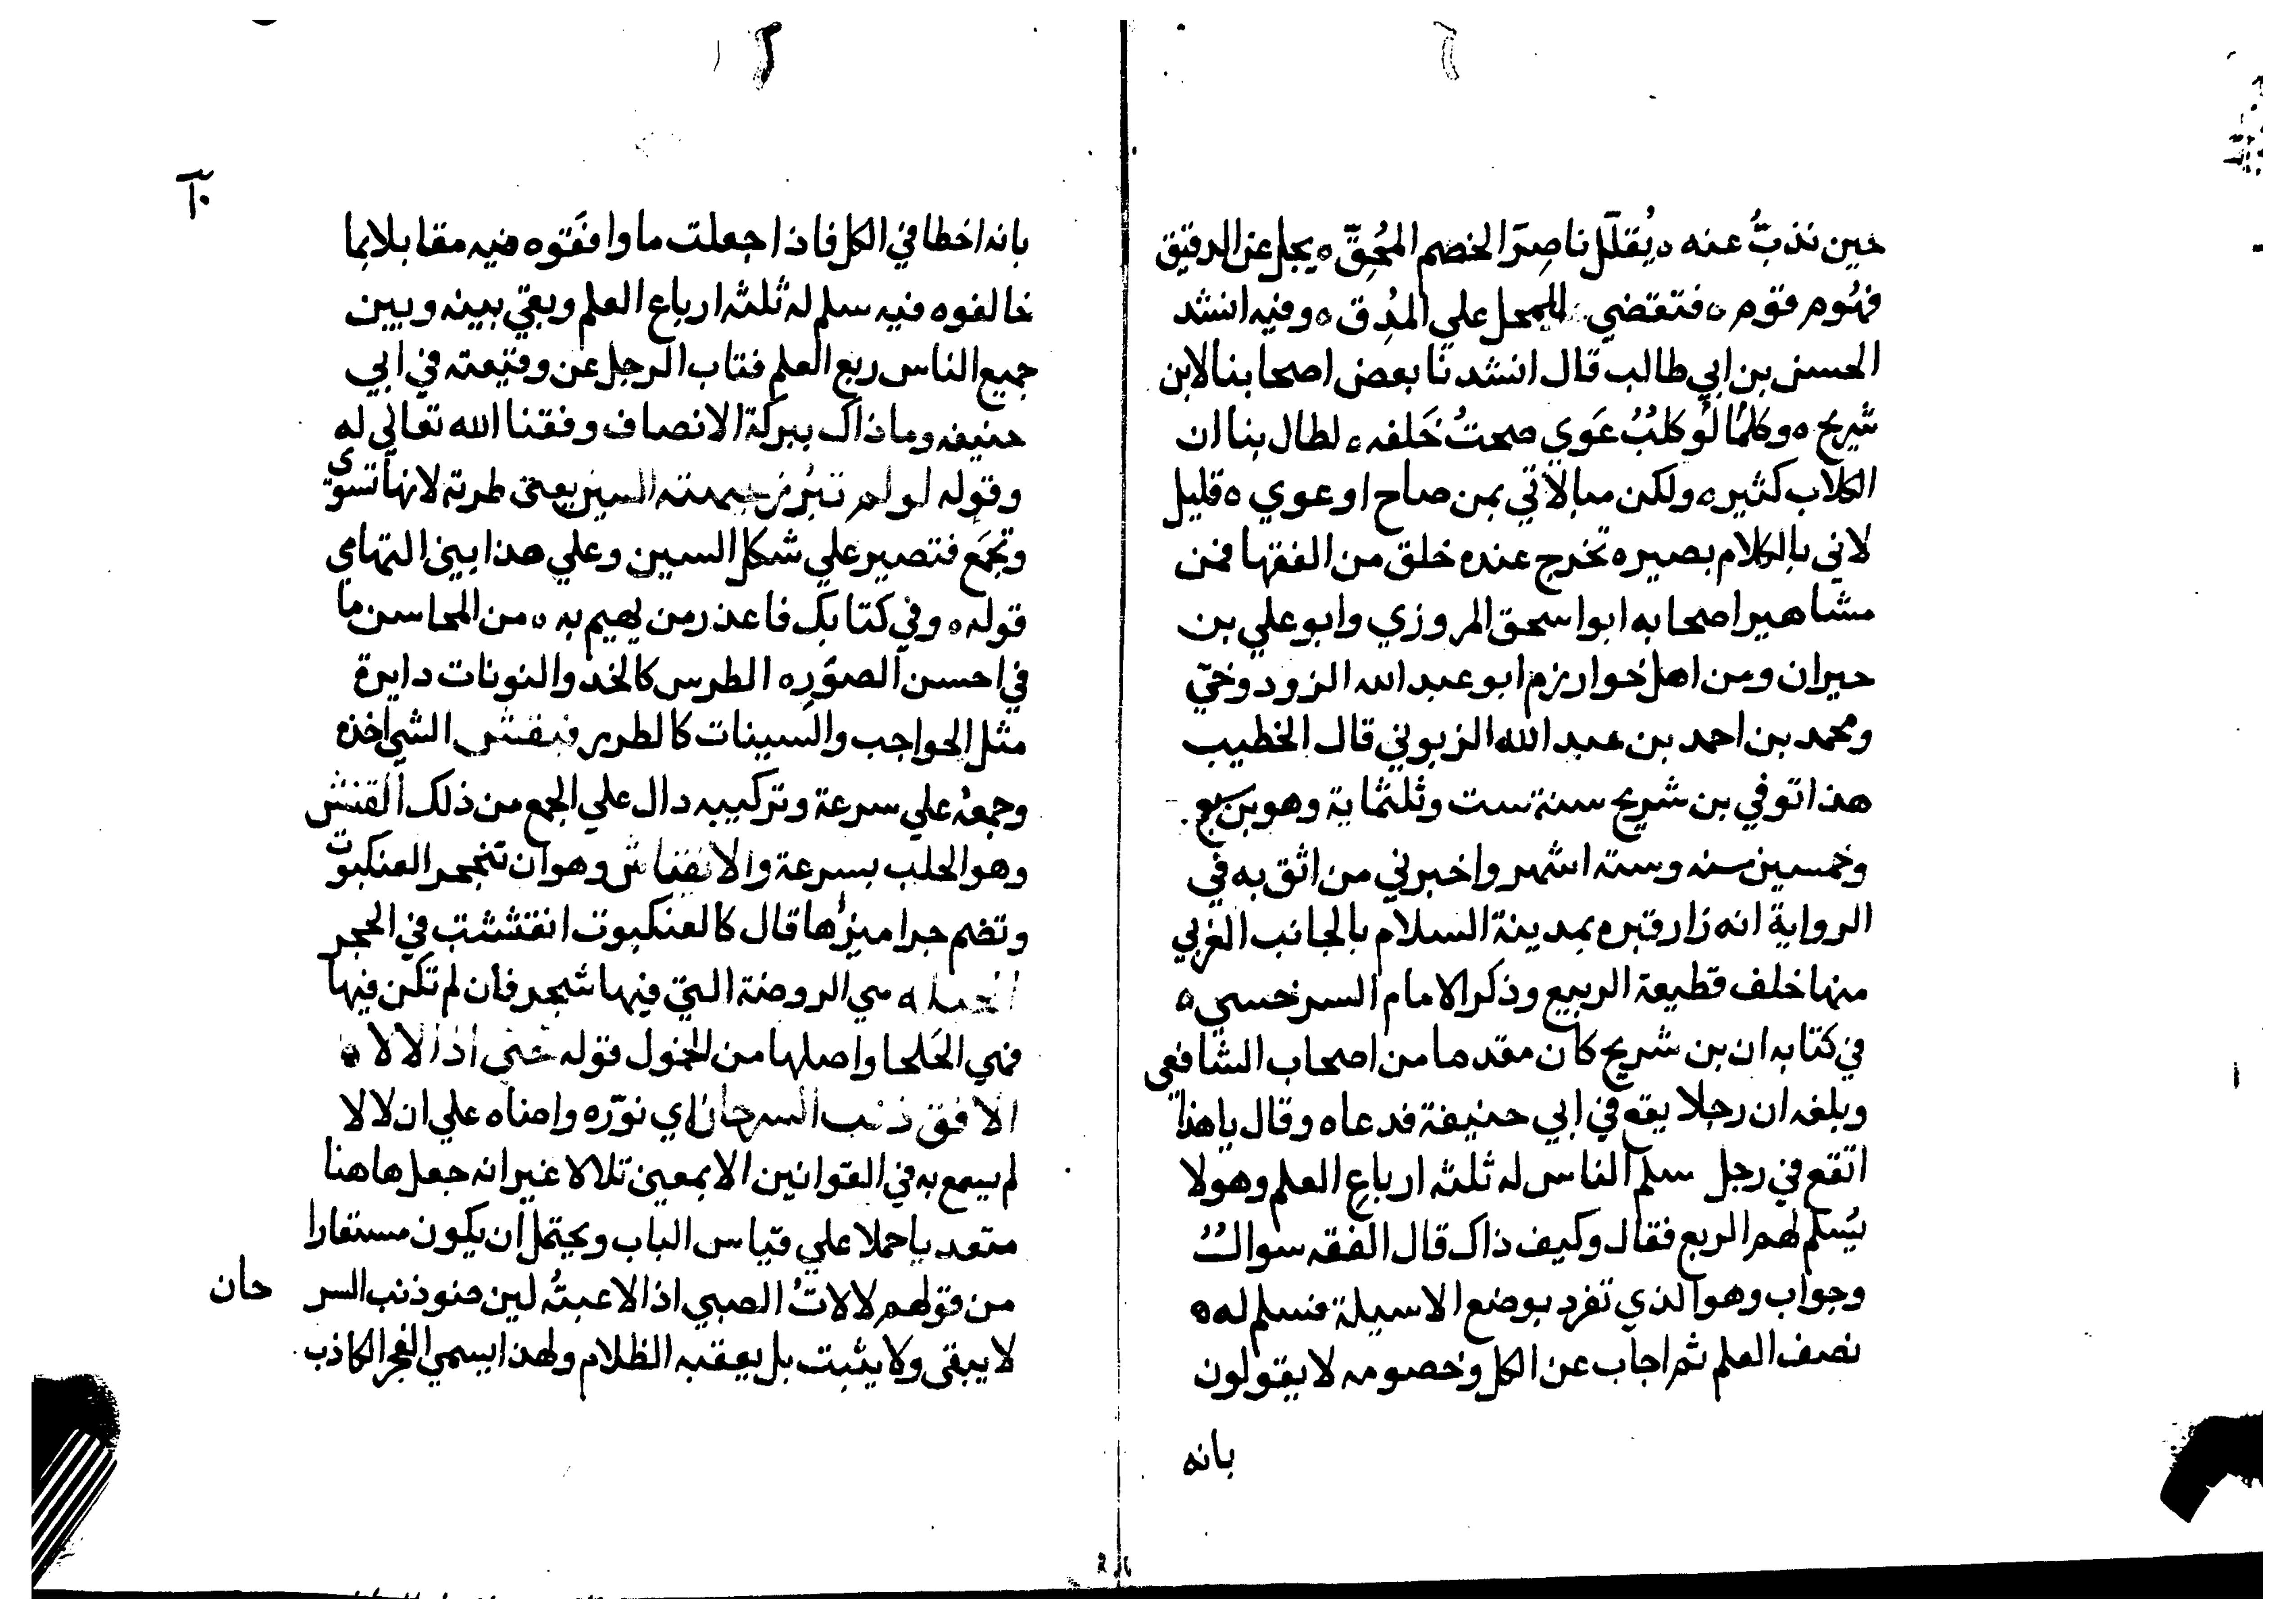 حين نذبّ عنه ه يُقلّل ناصِرَ الخصم المُحِقّ ه يجل عن الدقيق
فهُوم قوم ه فتقضي للمحل علي المُدِق ه وفيه انشد
الحسن بن ابي طالب قال انشدنا بعض اصحابنا لابن
شريح ه وكلمّا لَو كلبُ عَوي صحتُ خَلفه ه لطال بنا ان
الكلاب كثيره ولكن مبالاتي بمن صاح او عوي ه قليل
لاني بالكلام بصيره تخرج عنده خلق من الفقها فمن
مشاهير اصحابه ابو اسحق المروزي وابو علي بن
حيران ومن اهل خوارزم ابو عبد الله الزودوخي
ومحمد بن احمد بن عبد الله الزبوني قال الخطيب
هذا توفي بن شريح سنة ست وثلثماية وهو بن سبع
وخمسين سنه وستة اشهر واخبرني من اثق به في
الرواية انه زار قبره بمدينة السلام بالجانب الغربي
منها خلف قطيعة الربيع وذكر الامام السرخسي ه
في كتابه ان بن شريح كان مقدما من اصحاب الشافعي
وبلغه ان رجلا يقع في ابي حنيفة فدعاه وقال ياهذا
اتقع في رجل سلم الناس له ثلثه ارباع العلم وهولا
يُسلم لهم الربع فقال وكيف ذاك قال الفقه سوال
وجواب وهو الذي تفرد بوضع الاسيلة فسلم له ه
نصف العلم ثم اجاب عن الكل وخصومه لا يقولون
بانه
بانه اخطا في الكل فاذا جعلت ما وافَقوه فيه مقابلا بما
خالفوه فيه سلم له ثلثه ارباع العلم وبقي بينه وبين
جميع الناس ربع العلم فتاب الرجل عن وقيعته في ابي
حنيفه وما ذاك ببركة الانصاف وفقنا الله تعالي له
وقوله لو لم تبرُز جبهته السين يعني طرته لانها تسوي
وتجمَع فتصير علي شكل السين وعلي هذا بيني التهامي
قوله ه وفي كتابك فاعذر من يهيم به ه من المحاسن ما
في احسن الصوَر ه الطرس كالخد والنونات دايرة
مثل الحواجب والسينات كالطرر فبقنش الشي اخذه
وجمعهُ علي سرعة وتركيبه دال علي الجمع من ذلك القنش
وهو الحلب بسرعة والانقناش وهو ان تنجحر العنكبوت
وتضم جراميزُها قال كالعنكبوت انقششت في الحجر
الجمله هي الروضة التي فيها شجر فان لم تكن فيها
فهي الجَلحا واصلها من الخول قوله حتي اذا لالا ه
الافق ذنب السرحان اي نوّره واضاه علي ان لالا
لم يسمع به في القوانين الا بمعني تلالا غير انه جعل هاهنا
متعديا حملا علي قياس الباب ويحتمل ان يكون مستعارا
من قولهم لالاتُ الصبي اذا لاعبتُه لين ضو ذنب السر حان
لا يبقي ولا يثبت بل يعقبه الظلام ولهذا يسمي الفجر الكاذب